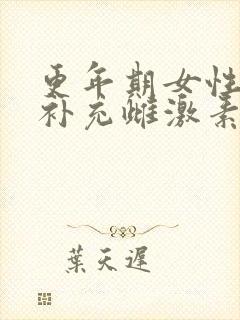 更年期女性
补充雌激素
葉天遲